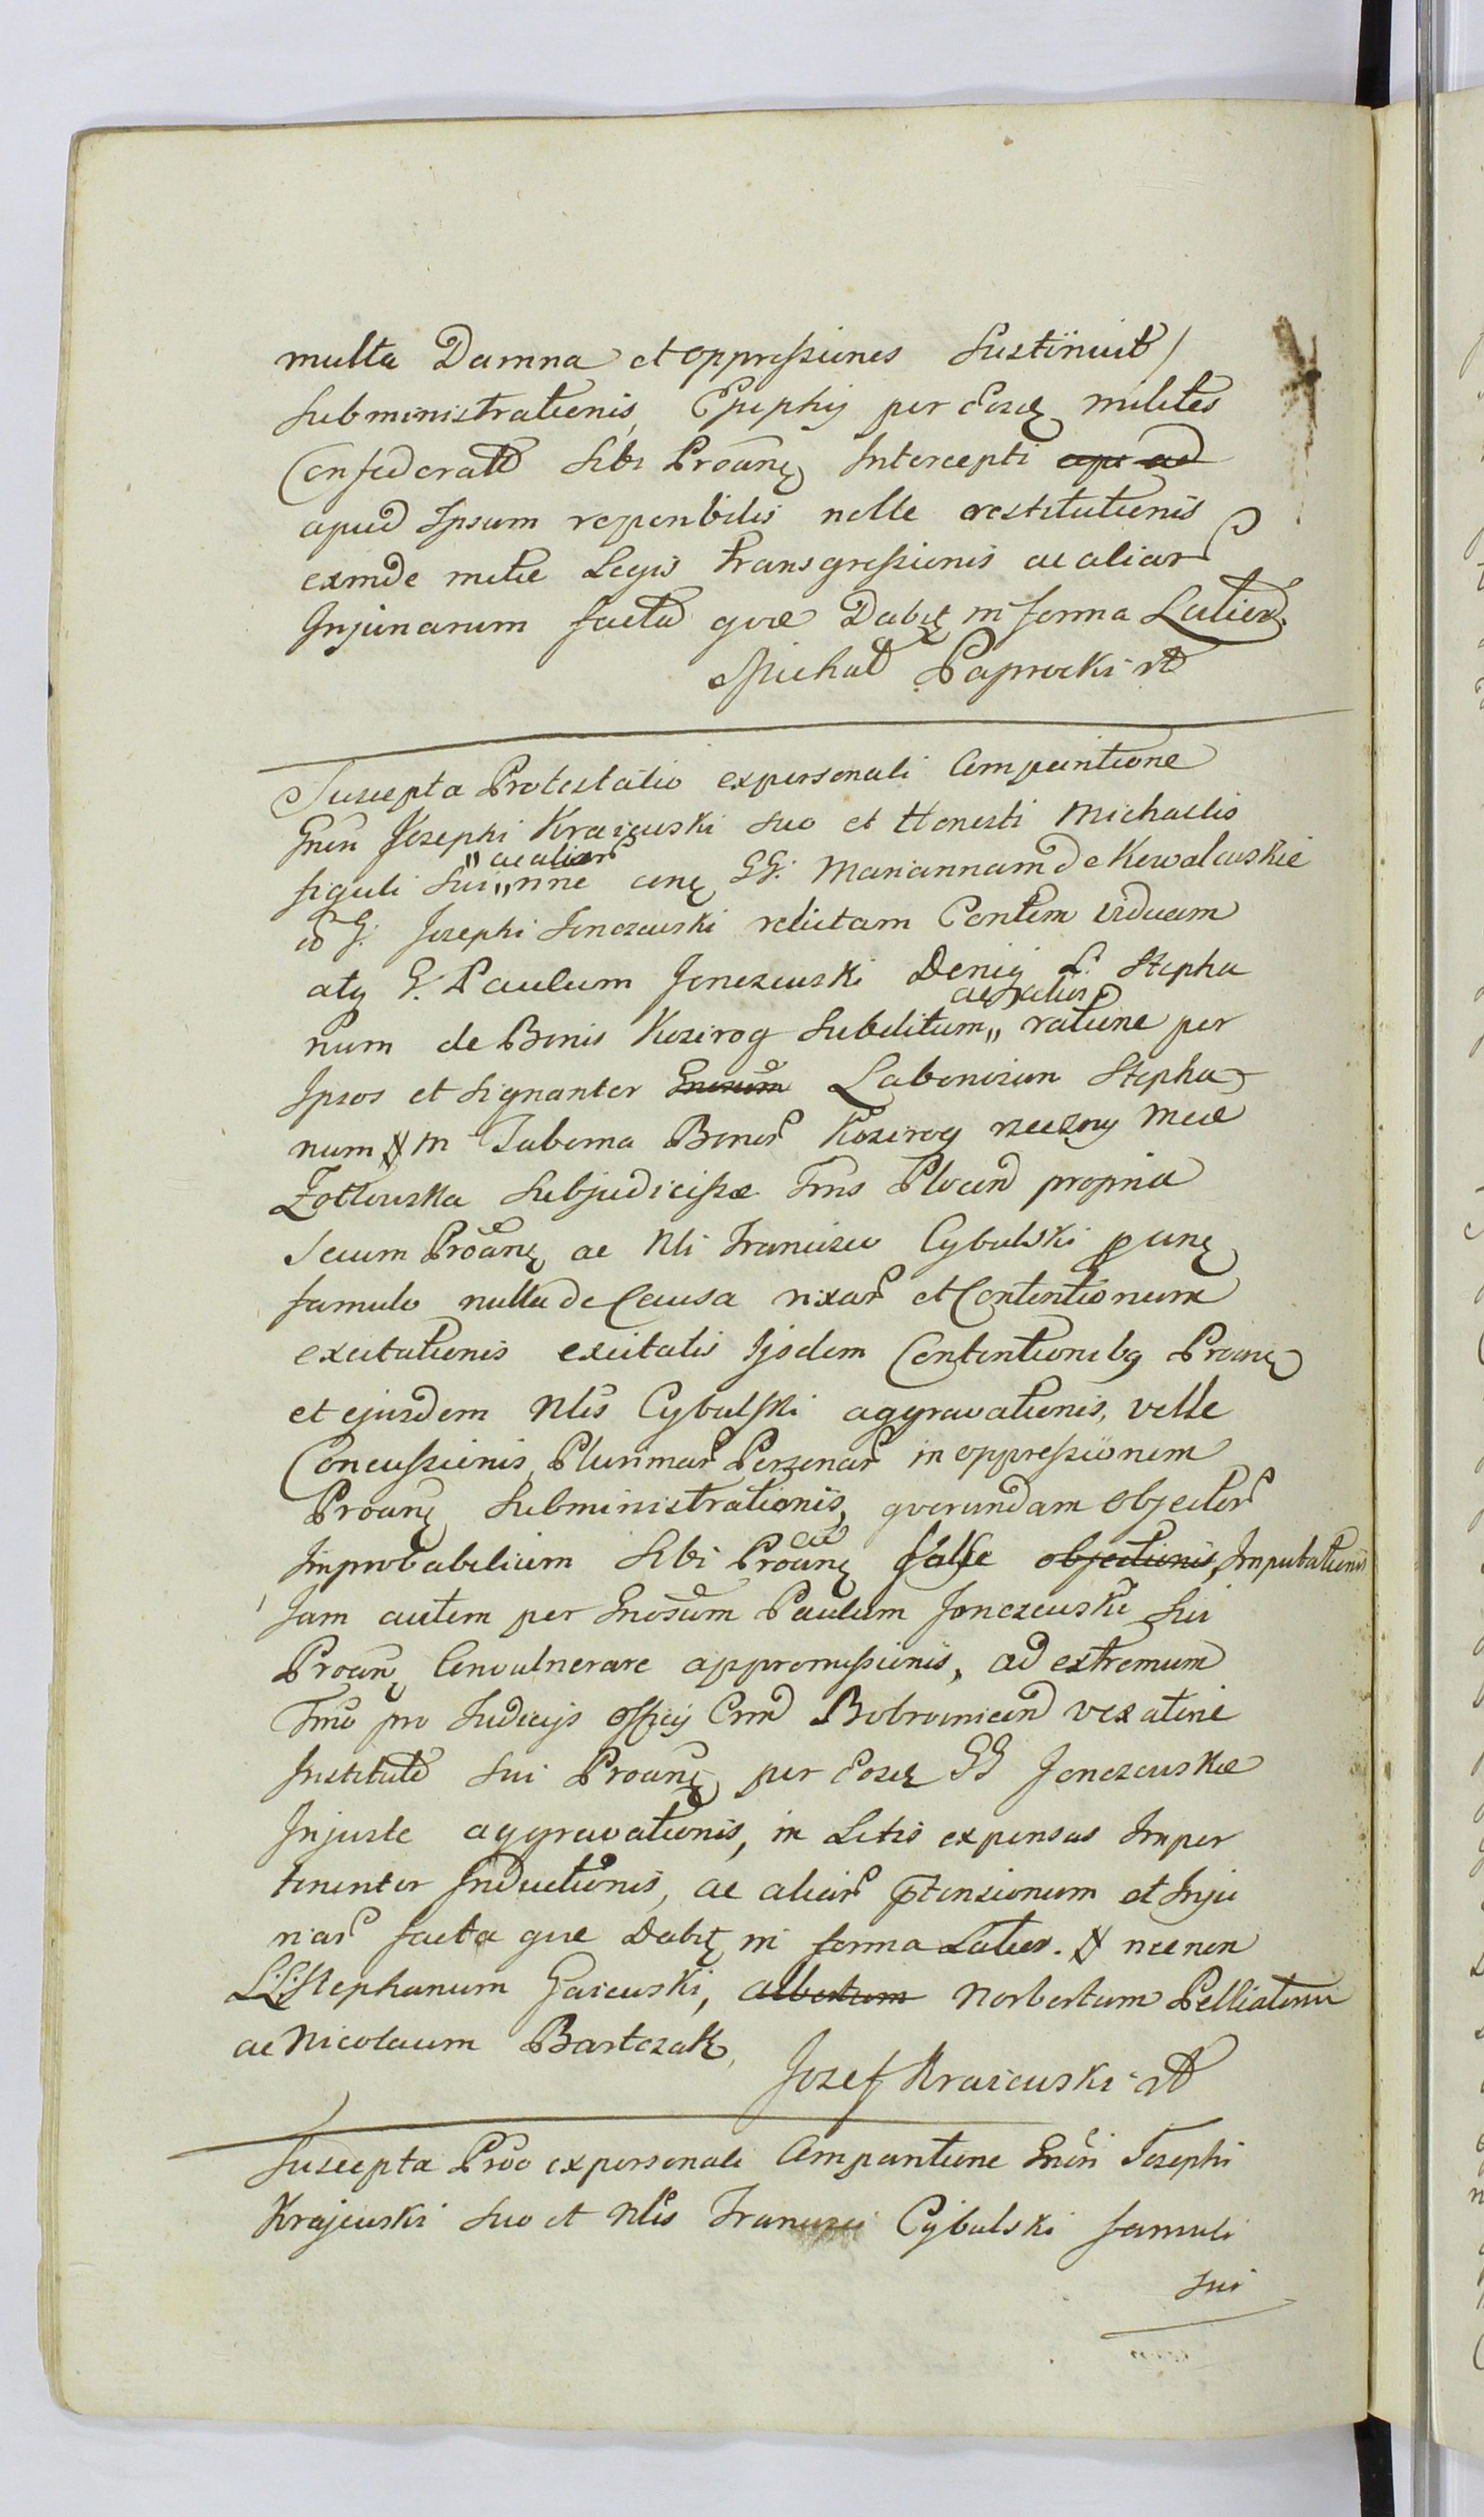 multa Damna et oppressiones sustinuit /
subministrationis, Ephiphij per eosd milites
Confederatt sibi Proãnẹ Intercepti ape ad
apud Ipsum reperibilis nolle restitutionis
exinde motie Legis transgressionis ac aliar
Injuriarum facta quæ Dabit in forma Latiori
Michał Paprocki
Suscepta Protestatio expersonali Comparitione
Gnsi Josephi Kraiewski suo et Honesti Michaelis
figuli sui " nne cong GG. Mariannam de Kowalewskie
" ac aliar
G. Josephi Jonczewski relictam Contem viduam
atq G. Paulum Jonczewski Deniq L. Stepha
num de Bonis Kozirog subditum " ratione per
Ipsos et signanter Gnosum Laboriosum Stepha
num in Taberna Bonor Kozirog rzeczony Mece
Zottowska subjudicisse Trns Plocen propria
secum Proãng ac Nli Francisco Cybulski
famulo nulla de Causa rixar et Contentionum
excitationis excitatis Ijsdem Contentionibq Proang
et ejusdem Nlis Cybulski aggravationis, velle
Concussionis, Plurimar Personar in oppressionem
Proang Subministrationis, quorundam objector
Improbabilium sibi Proang false objectionis, Imputationis
ac
Jam autem per Gnosum Paulum Jonczewski sui
Proang Convulnerare appromissionis, ad extremum
Trno pro Judicijs Officij Crnd Bobrownicen vexatione
Institutt sui Proang per Eosd GG Jonczewskie
Injuste aggravationis, in Litis expensas Imper
tinenter Inductionis, ac aliar ptensionum et Inju
riar facta quæ Dabit in forma Latior. necnon
LL: Stephanum Gaiewski, Albertum Norbertum Pelliatorem
ac Nicolaum Bartczak,
Jozef Kraiewski
Suscepta Proo expersonali Comparitione Gnsi Josephi
Krajewski suo et Nlis Francisci Cybulski famuli
sui